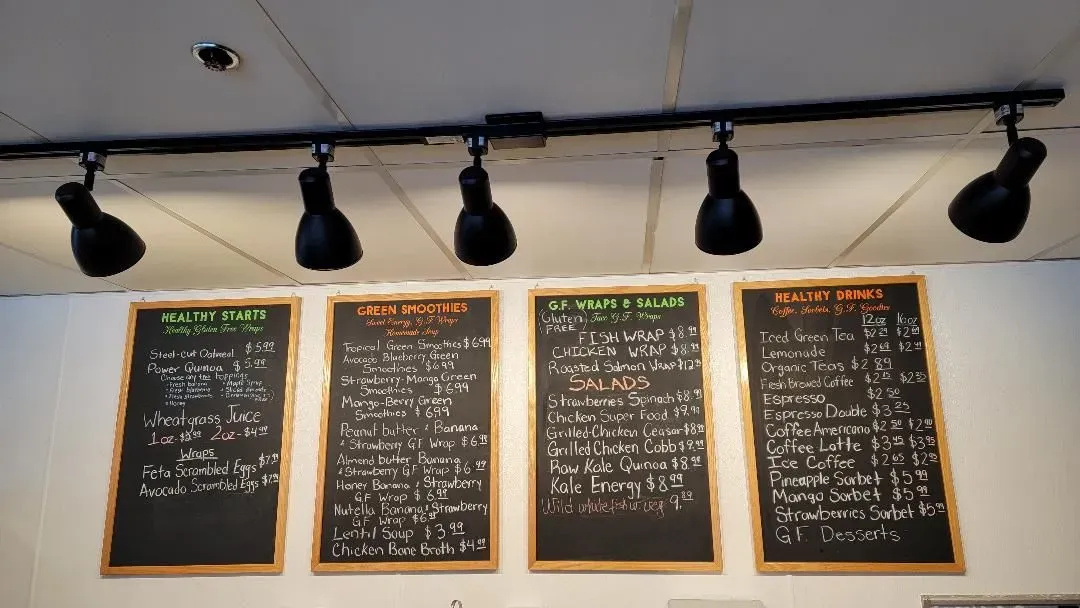 HEALTHY STARTS
Healthy Gluten Free Wraps
Steel-cut Oatmeal $5.99
Power Quinoa $5.99
Choose any two toppings
Fresh banana
Maple Syrup
Fresh blueberries
Sliced Almonds
Fresh strawberries
Honey
Wheatgrass Juice
1oz-$2.99 2oz-$4.99
Wraps
Feta Scrambled Eggs $7.99
Avocado Scrambled Eggs $7.99
GREEN SMOOTHIES
Sweet Energy, G.F Wraps
Homemade Soup
Tropical Green Smoothies $6.99
Avocado Blueberry Green
Smoothies $6.99
Strawberry-Mango Green
Smoothies $6.99
Mango-Berry Green
Smoothies $6.99
Peanut butter & Banana
& Strawberry GF Wrap $6.99
Almond Butter Banana
& Strawberry G.F Wraps $6.99
Honey Banana & Strawberry
G.F Wrap $6.99
Nutella Banana & Strawberry
G.F Wrap $6.99
Lentil Soup $3.99
Chicken Bone Broth $4.99
G.F. WRAPS & SALADS
Taco G.F. Wraps
(Gluten)
FREE
FISH WRAP $8.99
CHICKEN WRAP $8.99
Roasted Salmon Wrap $12.99
SALADS
Strawberries Spinach $8.99
Chicken Super Food $9.99
Grilled-Chicken Ceasar $8.99
Grilled Chicken Cobb $9.99
Raw Kale Quinoa $8.99
Kale Energy $8.99
Wild whitefish w. veg 9.89
HEALTHY DRINKS
Coffee, Sorbets, G.F. Goodies
12oz 16oz
Iced Green Tea
Lemonade
Organic Teas $2.89
Fresh Brewed Coffee
Espresso $2.50
Espresso Double $3.25
Coffee Americano $2.50
Coffee Latte $3.45 $3.95
Ice Coffee $2.65 $2.95
Pineapple Sorbet $5.99
Mango Sorbet $5.99
Strawberries Sorbet $5.99
G.F. Desserts